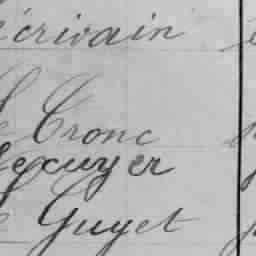 écrivain
Le Cronc
Lecuyer
Le Guyet